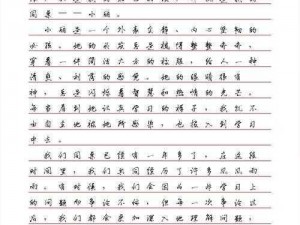 同桌——小丽。
小丽是一个外表文静，内心坚韧的
女孩。她的头发总是梳得整整齐齐，
穿着一件简洁大方的校服，给人一种
清爽、利落的感觉。她的眼睛很有
神，总是闪烁着智慧和热情的光芒。
每当看到她认真学习的样子，我就不
由自主地被她所感染，也投入到学习
中去。
我们同桌已经有一年多了，在这段
时间里，我们共同经历了许多风风雨
雨。有时候，我们会因为一些学习上
的问题而争论不休，但每一次争论过
后，我们都会更加深入地理解问题，